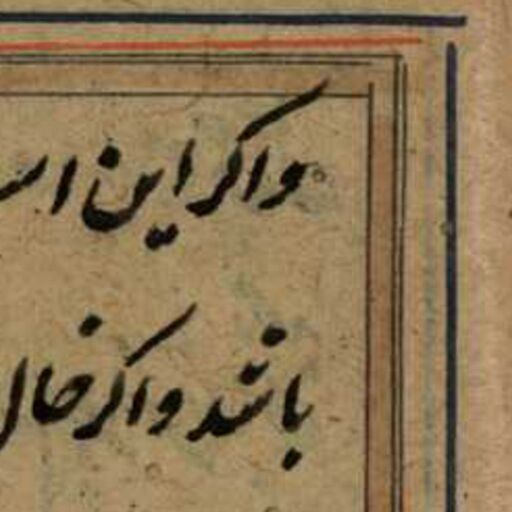 واکر این اس
باشد واکر خال